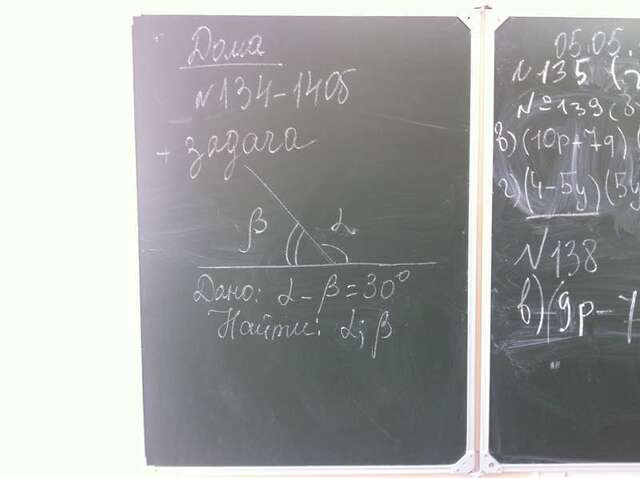 Дома
№134-140б
+ задача
β α
Дано: α - β = 30°
Найти: α; β
05.05.
№135 (
№139(в
в)(10p-7q)(
г)(4-5y)(5y
№138
в)(9p-